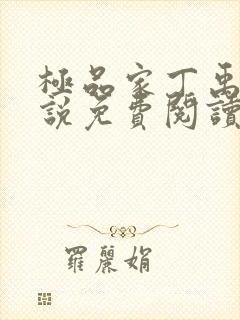 極品家丁禹
說免費閱讀
羅麗娟